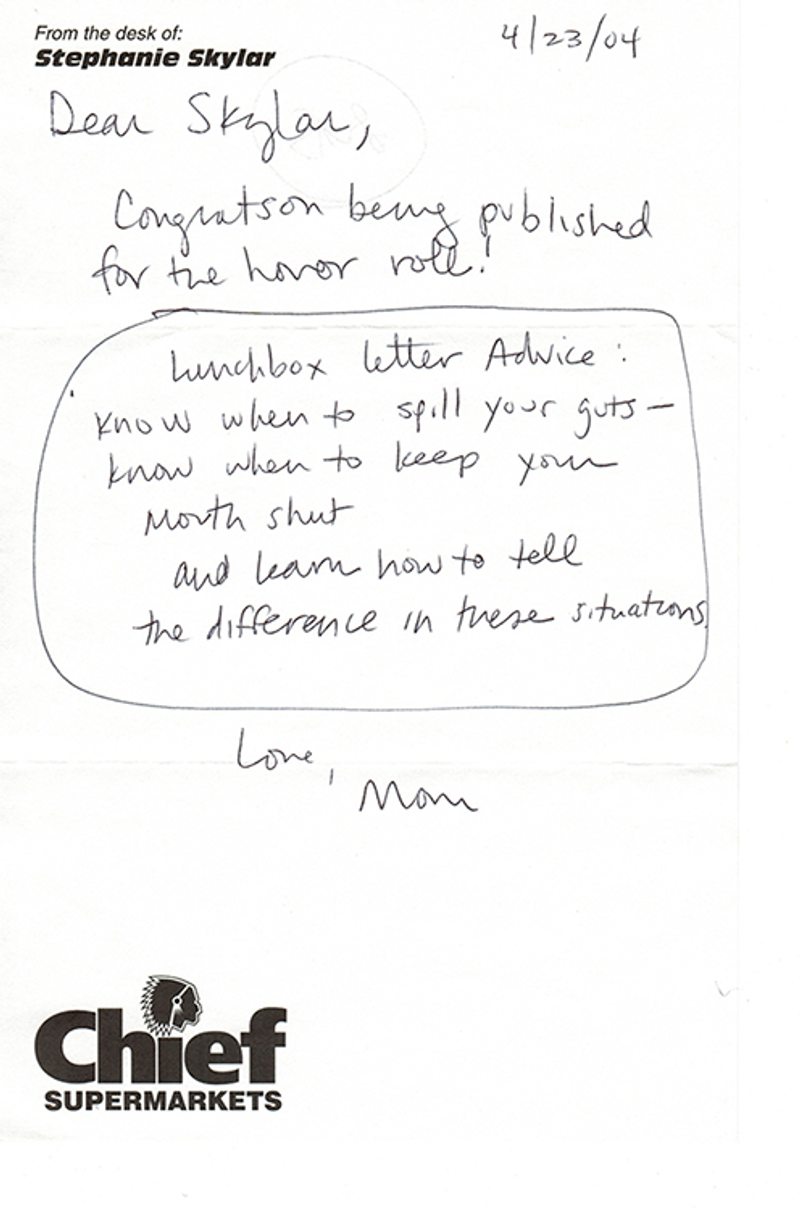 From the desk of:
Stephanie Skylar
4/23/04
Dear Skylar,
Congrats on being published
for the honor roll!
Lunchbox letter Advice:
Know when to spill your guts —
know when to keep your
mouth shut
and learn how to tell
the difference in these situations.
Love,
Mom
Chief
SUPERMARKETS